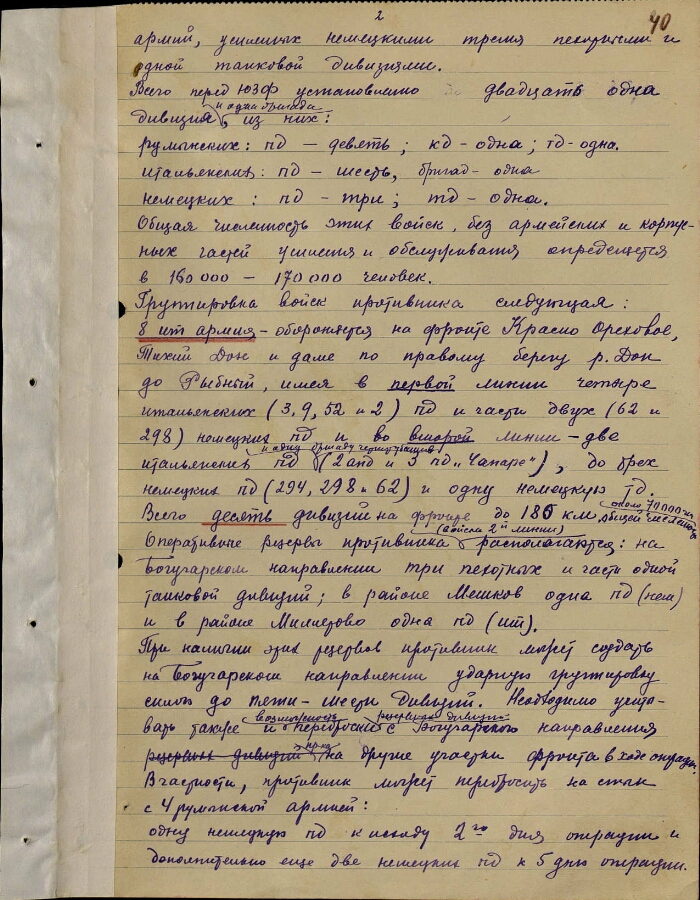 2
40
армий, усиленных немецкими тремя пехотными и
одной танковой дивизиями.
Всего перед ЮЗФ установлено двадцать одна
и одна бригада
дивизия, из них:
румынских: пд – девять; кд – одна; тд – одна.
итальянских: пд – шесть, бригад – одна
немецких: пд – три; тд – одна.
Общая численность этих войск, без армейских и корпус-
ных частей усиления и обслуживания определяется
в 160 000 – 170 000 человек.
Группировка войск противника следующая:
8 ит армия – обороняется на фронте Красно Ореховое,
Тихий Дон и далее по правому берегу р. Дон
до Рыбный, имея в первой линии четыре
итальянских (3, 9, 52 и 2) пд и части двух (62 и
298) немецких пд и во второй линии – две
и одну бригаду чернорубашк
итальянских пд (2 апд и 5 пд „Чапаре"), до трех
немецких пд (294, 298 и 62) и одну немецкую тд.
Всего десять дивизий на фронте до 180 км,
около 70000 чел общей числен
(войска 2й линии)
Оперативные резервы противника располагаются: на
Богучарском направлении три пехотных и части одной
танковой дивизий; в районе Мешков одна пд (нем)
и в районе Миллерово одна пд (ит).
При наличии этих резервов противник может создать
на Богучарском направлении ударную группировку
силою до пяти – шести дивизий. Необходимо учиты-
возможность резервных дивизий
вать также и переброски с Богучарского направления
резервных дивизий на другие участки фронта в ходе операции
В частности, противник может перебросить на стык
с 4 румынской армией:
одну немецкую пд к исходу 2го дня операции и
дополнительно еще две немецких пд к 5 дню операции.